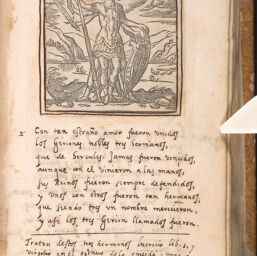 2ᵃ Con tan estraño amor fueron unidos
los Geriones nobles tres hermanos,
que de Hercules jamas fueron vencidos,
aunque con el vinieron a las manos:
sus Reinos fueron siempre defendidos,
y unos con otros fueron tan hermanos,
que siendo tres un nombre merecieron,
y assi los tres Gerion llamados fueron.
Tratan destos tres hermanos